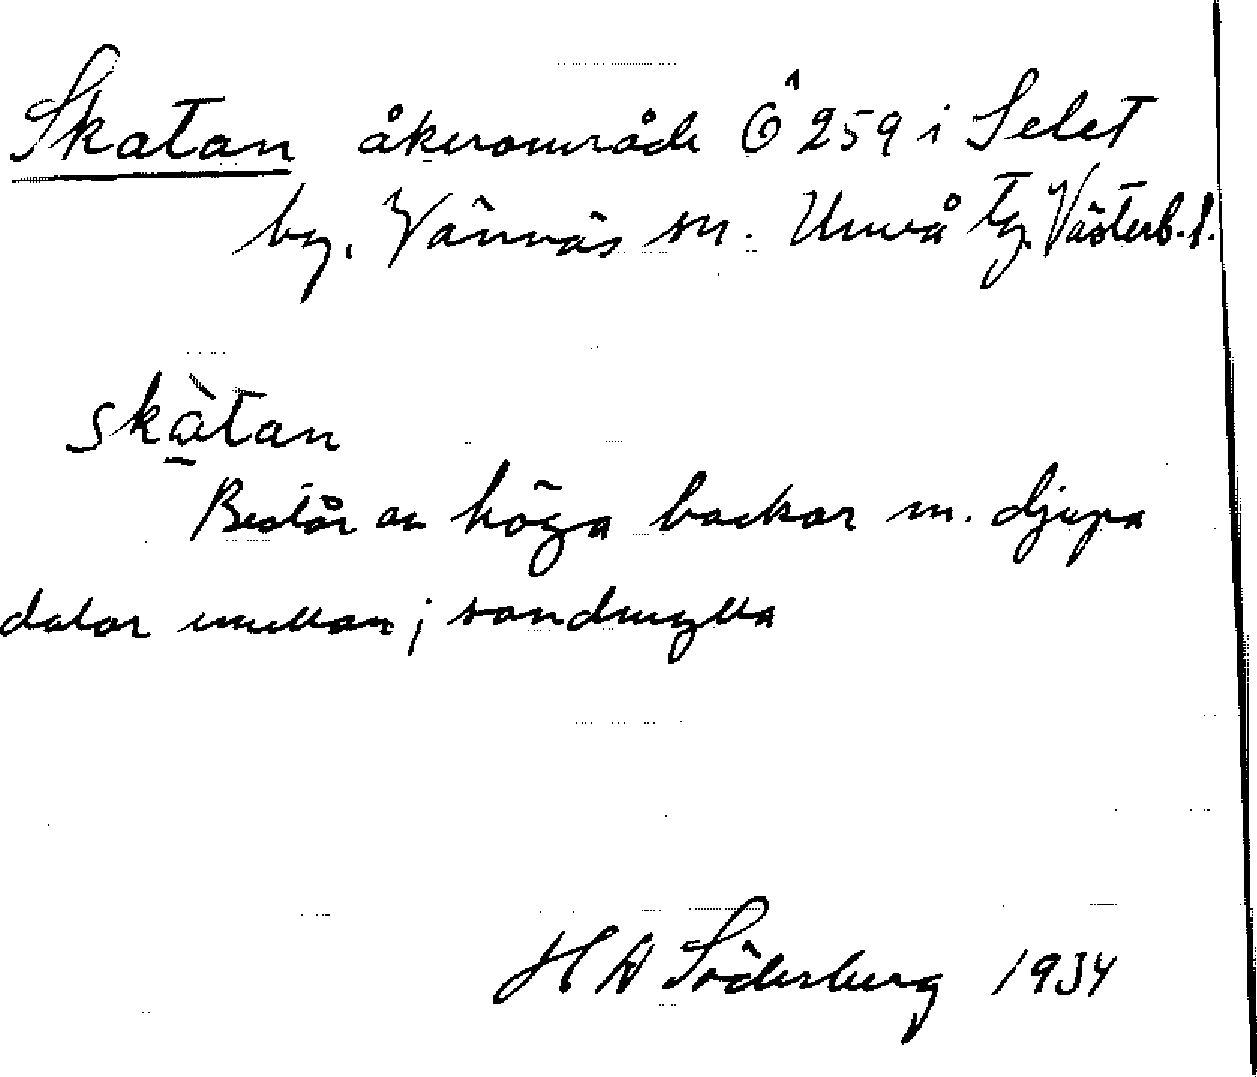 Skatan åkerområde 259 i Selet
by. Vännäs sn. Umeå tg. Västerb. l.
skàtan
Består av höga backar m. djupa
dalar emellan; sandmylla
H A Söderberg 1934